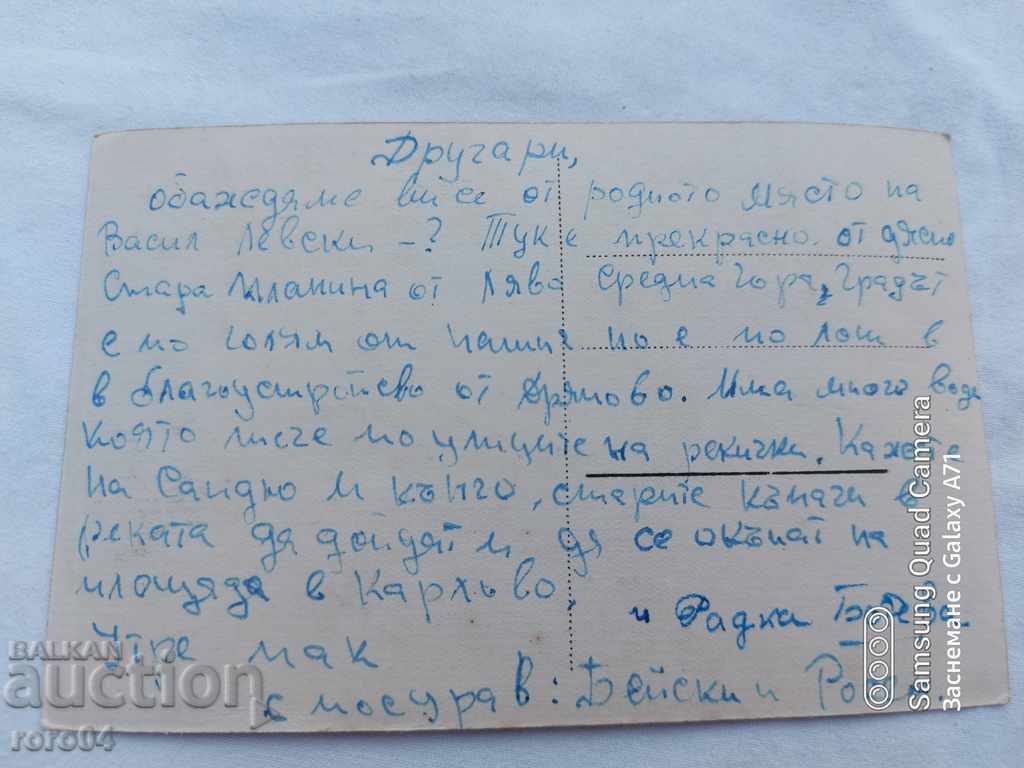 Другари,
обаждаме ви се от родното място на
Васил Левски -? Тук е прекрасно. от дясно
Стара Планина от ляво Средна гора, Градът
е по голям от нашия но е по лош в
в благоустройство от Дряново. Има много вода
която тече по улиците на рекички. Кажете
на Сандю и Кънчо, старите къпачи в
реката да дойдат и да се окъпат на
площада в Карлъво.
Утре пак
и Радка
с поздрав: Бейски и
BALKAN
auction
roro04
Samsung Quad Camera
Заснемане с Galaxy A71